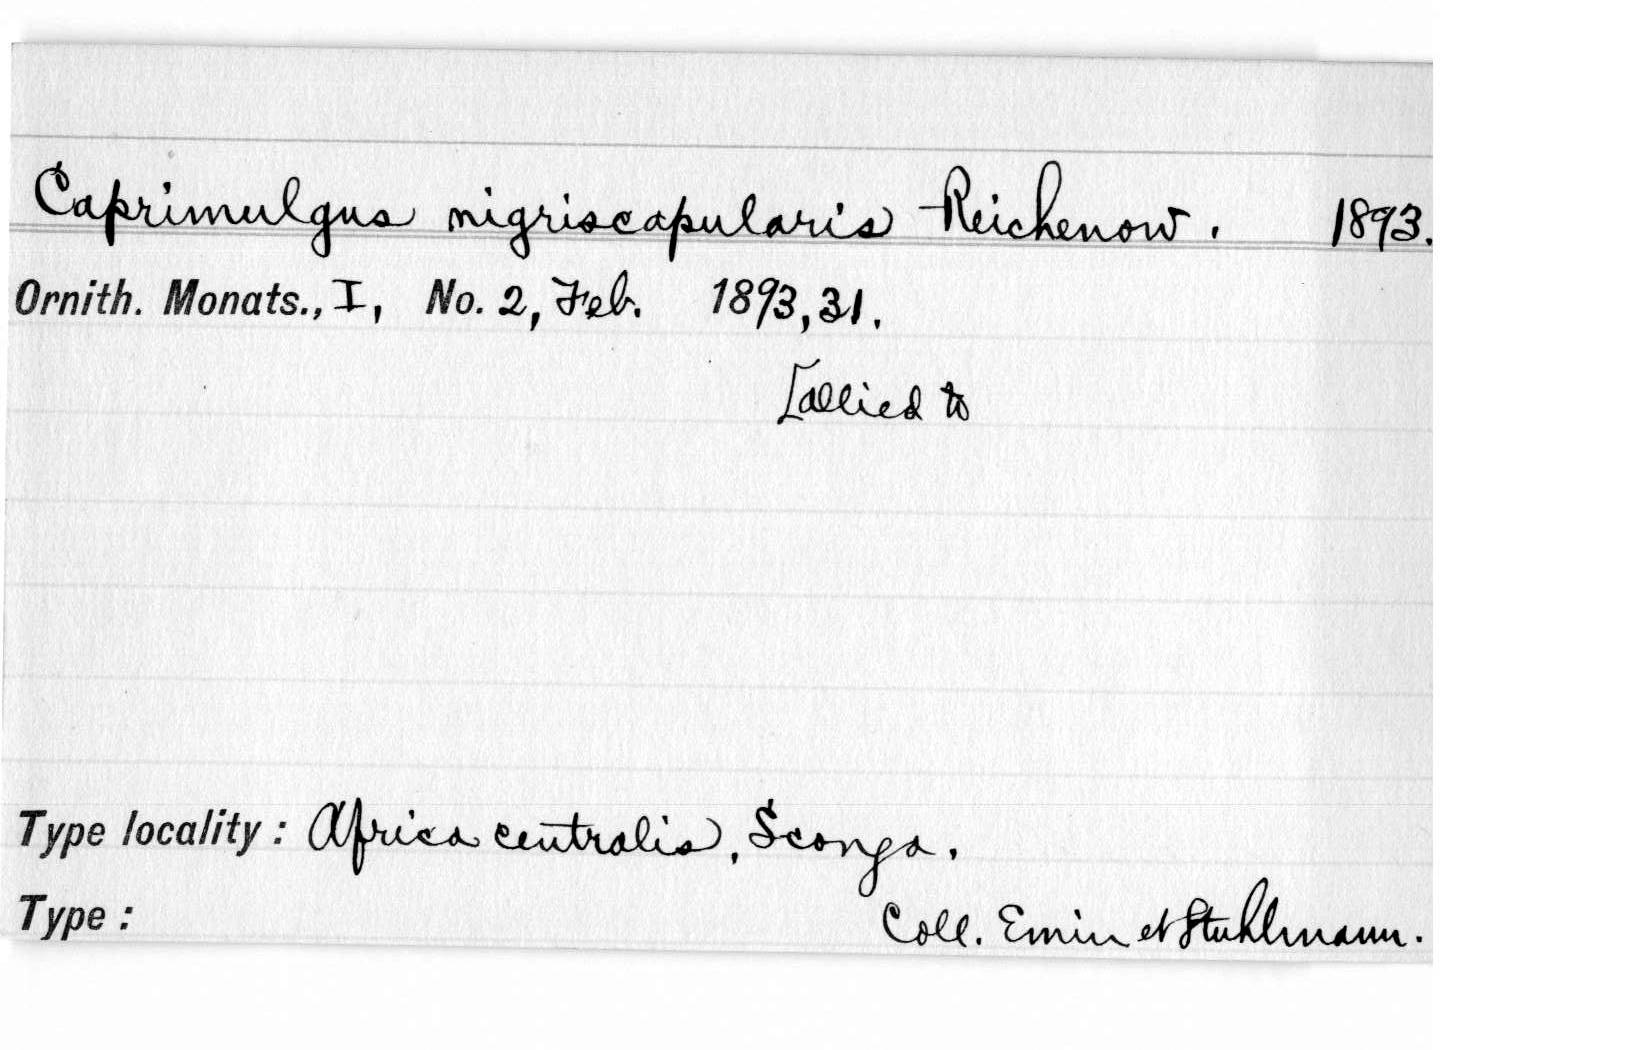 Caprimulgus nigriscapularis Reichenow. 1893.
Ornith. Monats., I, No. 2, Feb. 1893, 31.
[allied to
Type locality: Africa centralis, Sconga.
Type: Coll. Emin et Stuhlmann.